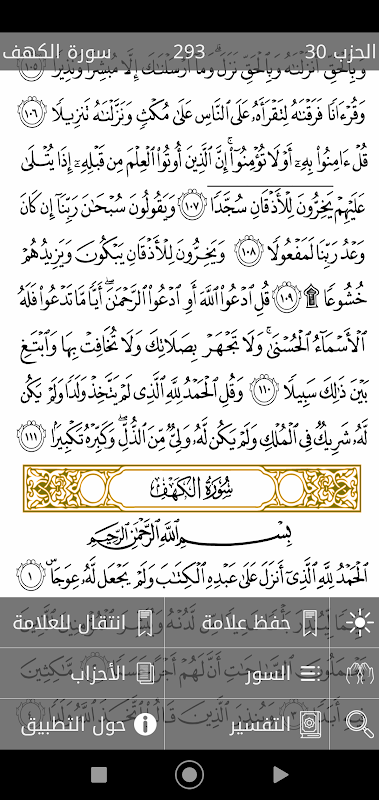 الحزب 30
293
سورة الكهف
وَبِالْحَقِّ أَنزَلْنَاهُ وَبِالْحَقِّ نَزَلَ ۗ وَمَا أَرْسَلْنَاكَ إِلَّا مُبَشِّرًا وَنَذِيرًا ١٠٥
وَقُرْءَانًا فَرَقْنَاهُ لِتَقْرَأَهُۥ عَلَى النَّاسِ عَلَىٰ مُكْثٍ وَنَزَّلْنَاهُ تَنزِيلًا ١٠٦
قُلْ ءَامِنُوا۟ بِهِۦٓ أَوْ لَا تُؤْمِنُوٓا۟ ۚ إِنَّ الَّذِينَ أُوتُوا۟ الْعِلْمَ مِن قَبْلِهِۦٓ إِذَا يُتْلَىٰ
عَلَيْهِمْ يَخِرُّونَ لِلْأَذْقَانِ سُجَّدًا ١٠٧ وَيَقُولُونَ سُبْحَٰنَ رَبِّنَآ إِن كَانَ
وَعْدُ رَبِّنَا لَمَفْعُولًا ١٠٨ وَيَخِرُّونَ لِلْأَذْقَانِ يَبْكُونَ وَيَزِيدُهُمْ
خُشُوعًا ۩ ١٠٩ قُلِ ادْعُوا۟ اللَّهَ أَوِ ادْعُوا۟ الرَّحْمَٰنَ ۖ أَيًّا مَّا تَدْعُوا۟ فَلَهُ
الْأَسْمَآءُ الْحُسْنَىٰ ۚ وَلَا تَجْهَرْ بِصَلَاتِكَ وَلَا تُخَافِتْ بِهَا وَابْتَغِ
بَيْنَ ذَٰلِكَ سَبِيلًا ١١٠ وَقُلِ الْحَمْدُ لِلَّهِ الَّذِى لَمْ يَتَّخِذْ وَلَدًا وَلَمْ يَكُن
لَّهُۥ شَرِيكٌ فِى الْمُلْكِ وَلَمْ يَكُن لَّهُۥ وَلِىٌّ مِّنَ الذُّلِّ ۖ وَكَبِّرْهُ تَكْبِيرًۢا ١١١
سُورَةُ الْكَهْفِ
بِسْمِ اللَّهِ الرَّحْمَٰنِ الرَّحِيمِ
الْحَمْدُ لِلَّهِ الَّذِىٓ أَنزَلَ عَلَىٰ عَبْدِهِ الْكِتَٰبَ وَلَمْ يَجْعَل لَّهُۥ عِوَجَا ۜ ١
حفظ علامة
انتقال للعلامة
السور
الأحزاب
التفسير
حول التطبيق